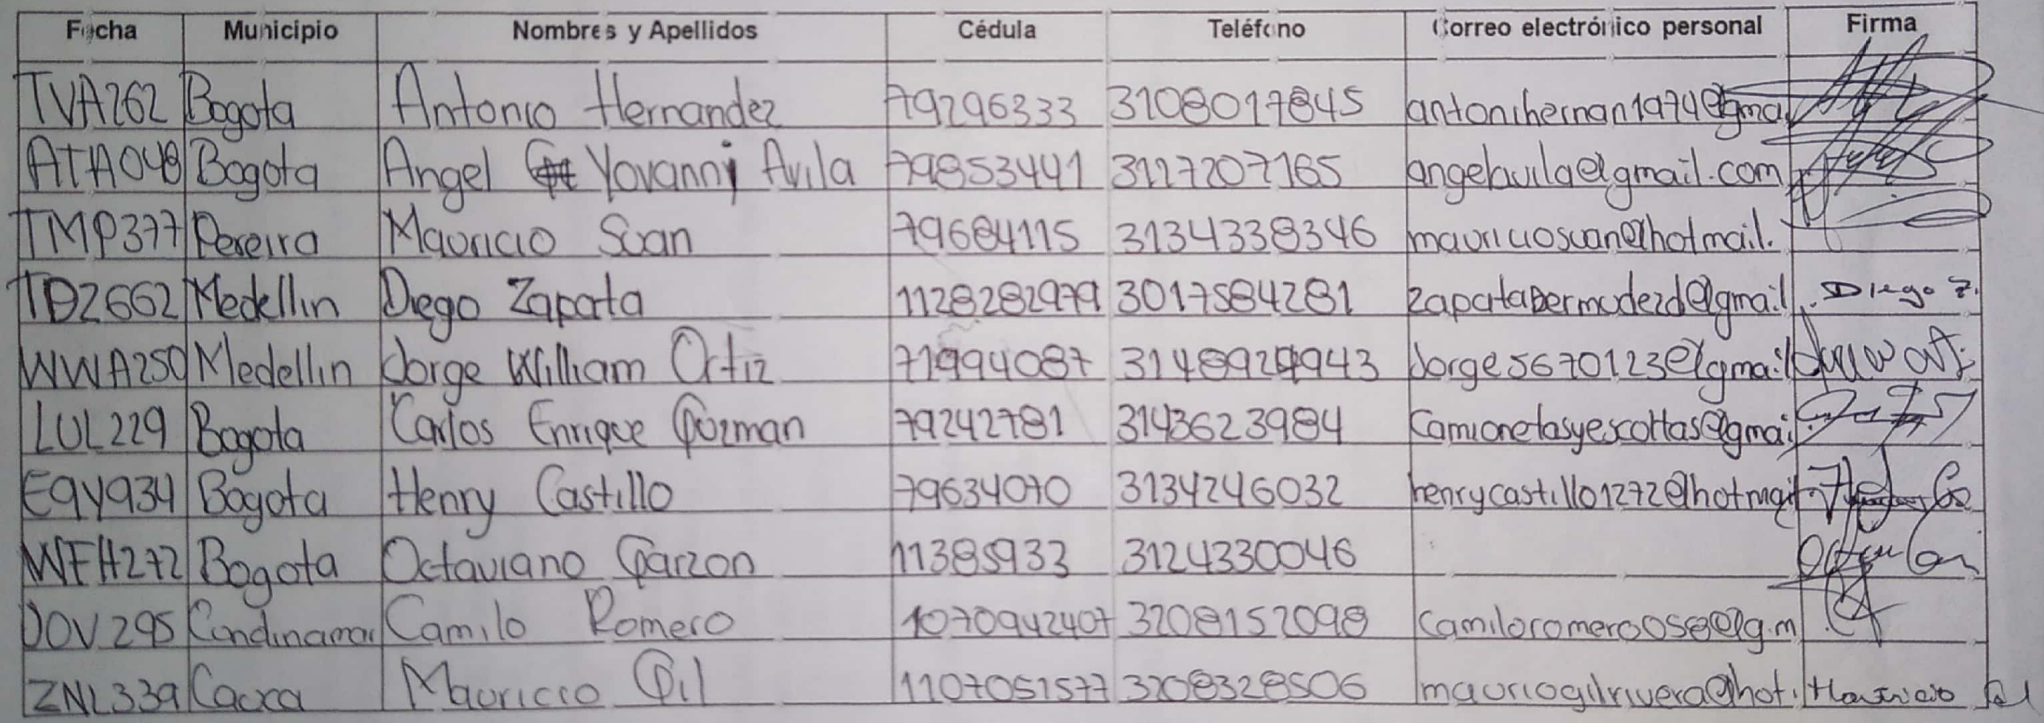 Fecha Municipio Nombres y Apellidos Cédula Teléfono Correo electrónico personal Firma
TVA262 Bogota Antonio Hernandez 79296333 3108017845 antonihernan1974@gmai
ATA048 Bogota Angel Yovanni Avila 79853441 3127207165 angelavila@gmail.com
TMP377 Pereira Mauricio Suan 79684115 3134338346 mauriciosuan@hotmail.
TDZ662 Medellin Diego Zapata 1128282979 3017584281 zapatabermudezd@gmail Diego Z.
WWA250 Medellin Jorge William Ortiz 71994087 3148929943 Jorge5670123@gmail
LUL229 Bogota Carlos Enrique Guzman 79242781 3143623984 Camionetasyescoltas@gmai
EQY934 Bogota Henry Castillo 79634070 3134246032 henrycastillo1272@hotmail
WFH272 Bogota Octaviano Garzon 11385933 3124330046
JOV295 Cundinamar Camilo Romero 1070942407 3208152098 Camiloromero058@g.m
ZNL339 Mauricio Gil 1107051577 3208328506 mauriogilrivera@hot. Mauricio Gil